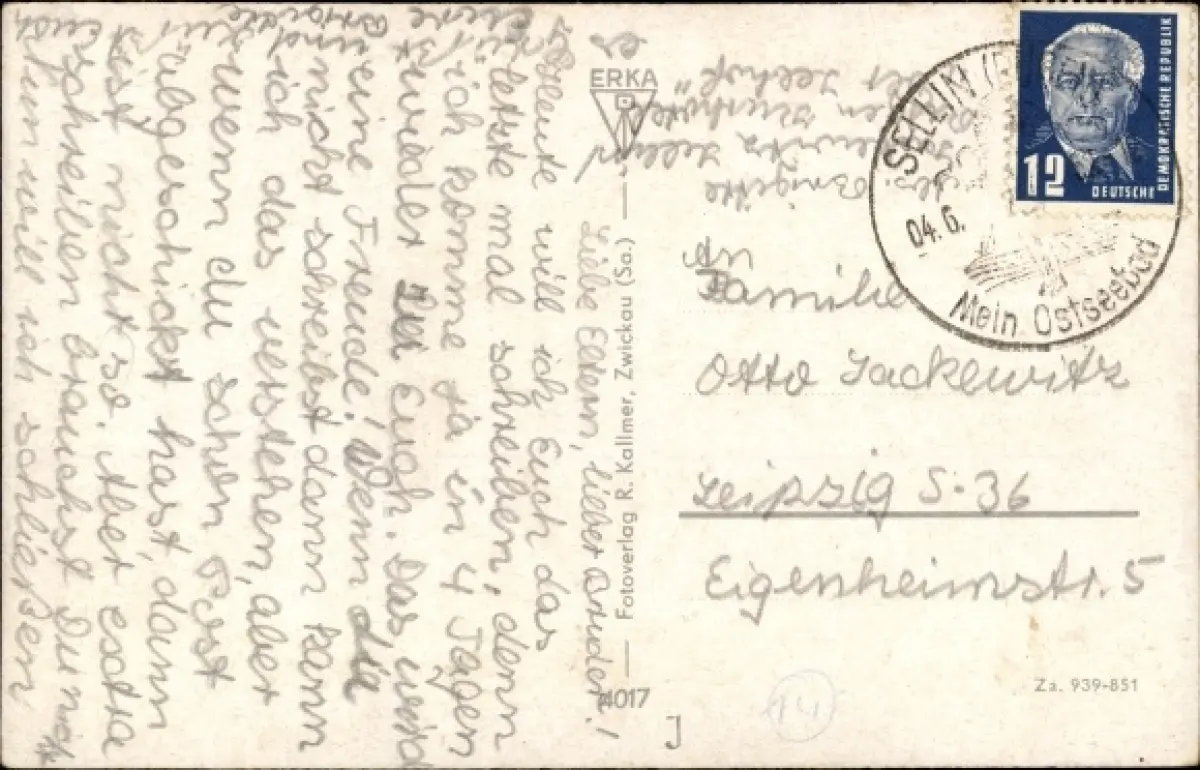 Liebe Eltern, lieber Bruder!
Heute will ich Euch das
letzte mal schreiben, denn
ich komme ja in 4 Tagen
wieder zu Euch. Das wird
eine Freude! Wenn du
mich schreibst dann kann
ich das verstehen, aber
wenn du schon Post
abgeschickt hast, dann
ist nicht so. Aber extra
schreiben brauchst Du nicht
Nun will ich schließen
ERKA
Fotoverlag R. Kallmer, Zwickau (Sa.)
4017
J
Brigitte
Sellin
SELLIN
04. 6.
Mein Ostseebad
12
DEUTSCHE
DEMOKRATISCHE REPUBLIK
An
Familie
Otto Sackewitz
Leipzig S-36
Eigenheimstr. 5
Za. 939-851
14